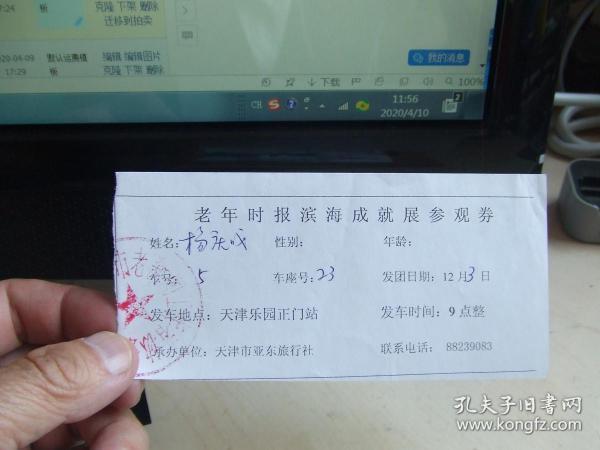 7:24 板 克隆 下架 删除
迁移到拍卖
020-04-09 默认运费模 编辑 编辑图片
17:29 板 克隆 下架 删除
我的消息
下载 100%
CH 11:56
2020/4/10 2
老年时报滨海成就展参观券
姓名: 杨庆成 性别: 年龄:
车号: 5 车座号: 23 发团日期: 12月3日
发车地点: 天津乐园正门站 发车时间: 9点整
承办单位: 天津市亚东旅行社 联系电话: 88239083
孔夫子旧书网
www.kongfz.com